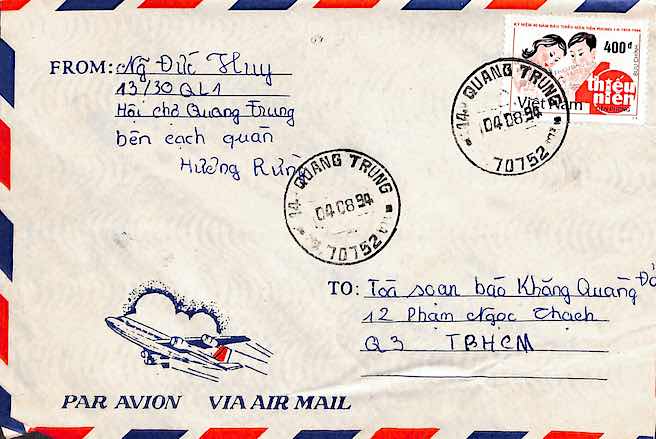 FROM: Ng Đức Huy
13/30 QL1
Hội chợ Quang Trung
bên cạch quán
Hương Rừng
KỶ NIỆM 40 NĂM BÁO THIẾU NIÊN TIỀN PHONG
400đ
BƯU CHÍNH
thiếu
niên
TIỀN PHONG
Việt Nam
14 QUANG TRUNG
04 08 94
70752
14 QUANG TRUNG
04 08 94
70752
TO: Toà soạn báo Khăng Quàng Đỏ
12 Phạm Ngọc Thạch
Q3 TPHCM
PAR AVION VIA AIR MAIL